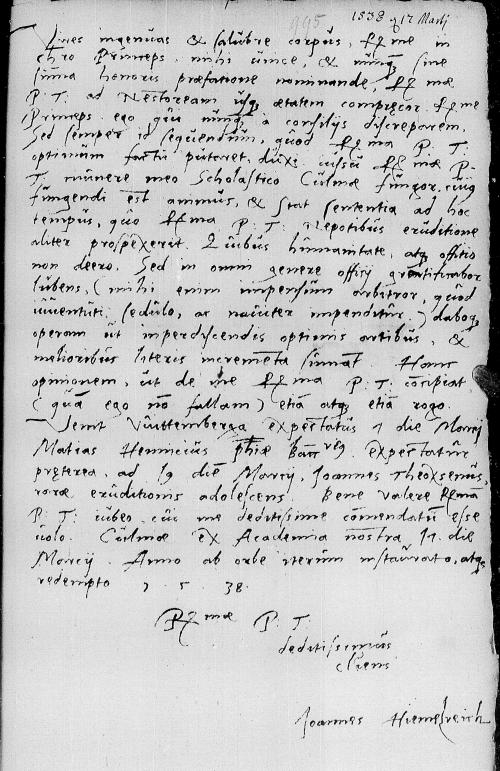 995 1538 17 Martij
Vires ingenuas & salubre corpus, R me in
chro Princeps, mihi unice, & nunq sine
summa honoris præfatione nominande, R mæ
P. T. ad Nestoream usq ætatem comprecor. R me
Princeps ego qui nunq à consilijs discreparem,
Sed semper id sequendum, quod R ma P. T.
optimum factu putaret, duxi iussu R mæ P.
T. munere meo Scholastico Culmæ fungor, cuiq
fungendi est animus, & stat sententia ad hoc
tempus, quo R ma P. T. Nepotibus eruditione
aliter prospexerit. Quibus humanitate, atq officio
non deero. Sed in omni genere officij gratificabor
lubens, (mihi enim impensum arbitror, quod
iuventuti sedulo, ac naviter impenditur) daboq
operam ut in perdiscendis optimis artibus, &
melioribus literis incrementa sumant. Hanc
opinionem, ut de me R ma P. T. concipiat
(quam ego nō fallam) etiā atq etiā rogo.
Venit Vuittemberga expectatus 1 die Marcij
Matias Henricius phiæ Bacc expectatur
præterea, ad 19 diē Marcij, Joannes Theoxsenus,
raræ eruditionis adolescens. Bene valere R mā
P. T. iubeo, cui me deditissime comendatū esse
volo. Culmæ ex Academia nostra 17. die
Marcij. Anno ab orbe iterum instaurato, atq
redempto 1 . 5 . 38.
R mæ P. T.
deditissimus
cliens
Joannes Hiemelreich